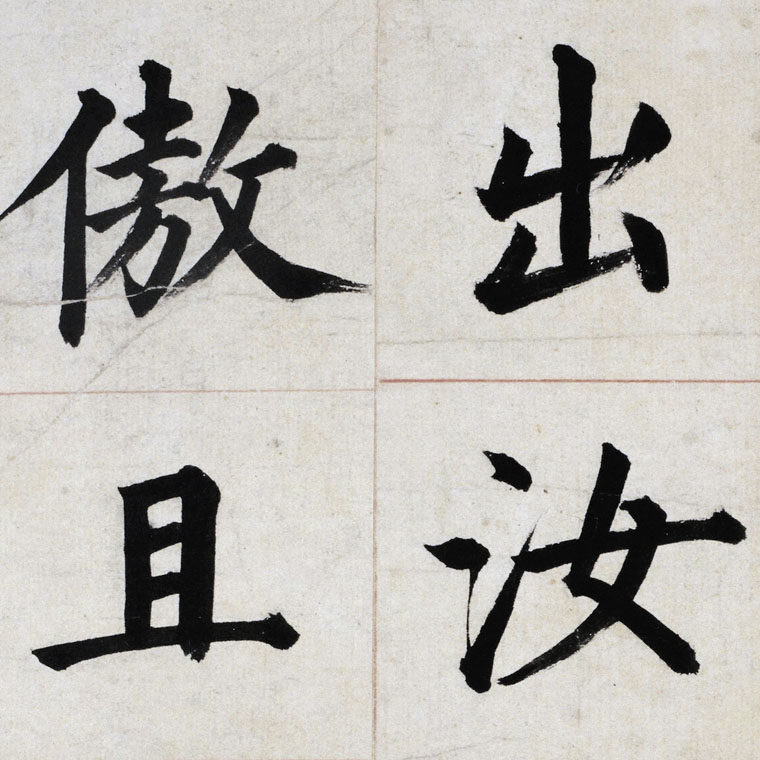 出汝
傲且